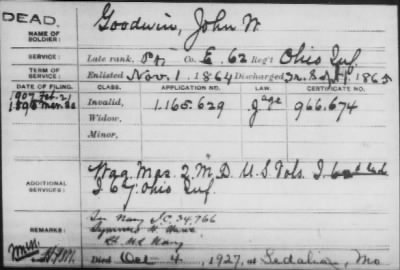 DEAD.
NAME OF SOLDIER: Goodwin, John W.
SERVICE: Late rank, Pvt Co. E, 62 Reg't Ohio Inf.
TERM OF SERVICE: Enlisted Nov. 1, 1864 Discharged 1865
DATE OF FILING. CLASS. APPLICATION NO. LAW. CERTIFICATE NO.
1907 Feb. 21
Invalid, 1.165.629 g age 966.674
Widow,
Minor,
ADDITIONAL SERVICES: Wag. Mas. 2. M D. U.S. Vols.
I 67. Ohio Inf.
REMARKS: In Navy I.C. 34,766
Navy
Died Oct 4, 1927, at Sedalia, Mo